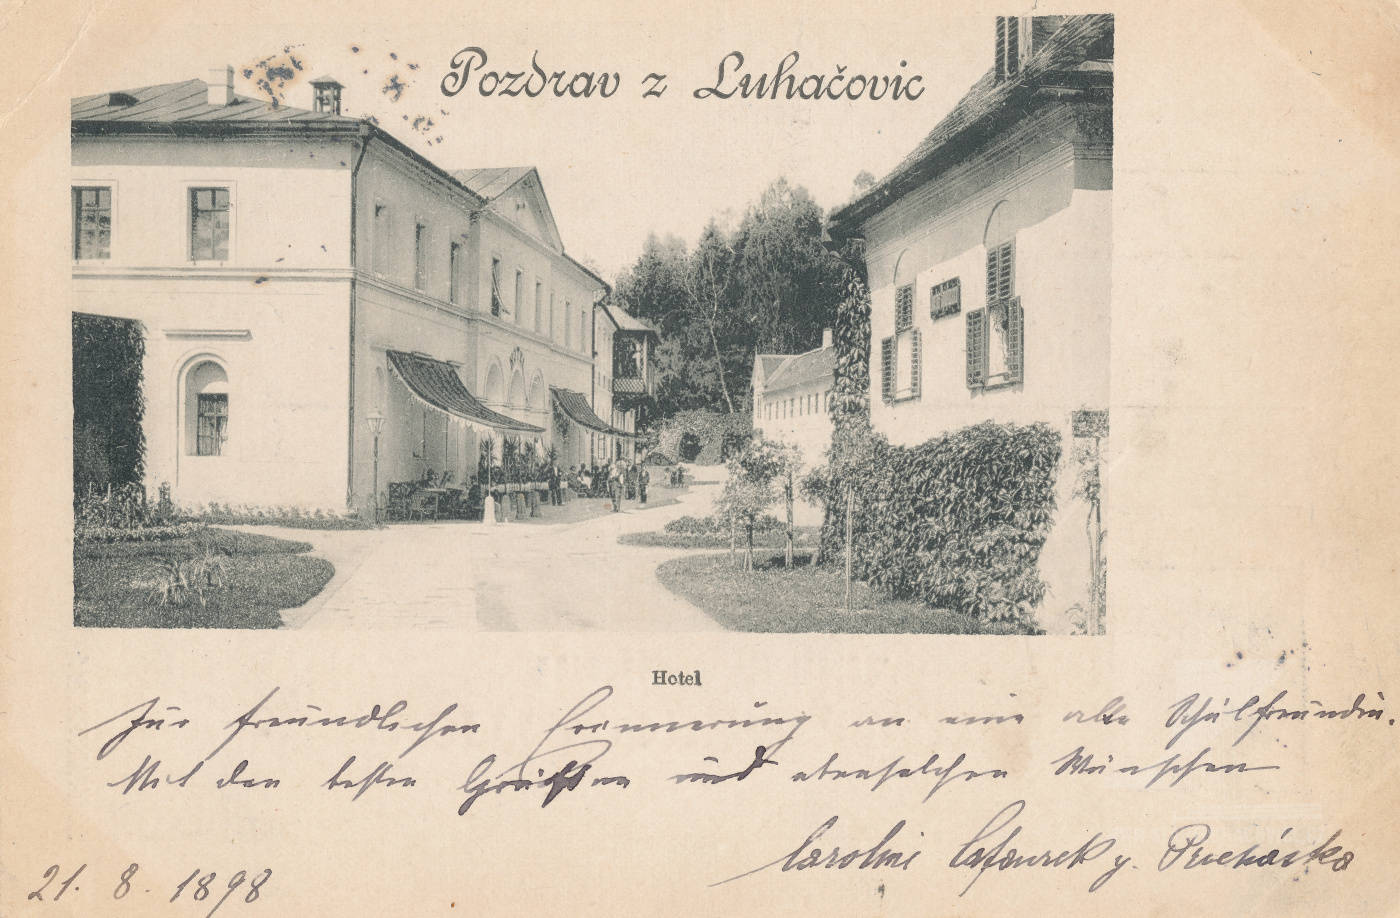 Pozdrav z Luhačovic
Hotel
Zur freundlichen Erinnerung an eine alte Schulfreundin.
Mit den besten Grüßen und ebensolchen Wünschen
Caroline
21. 8. 1898